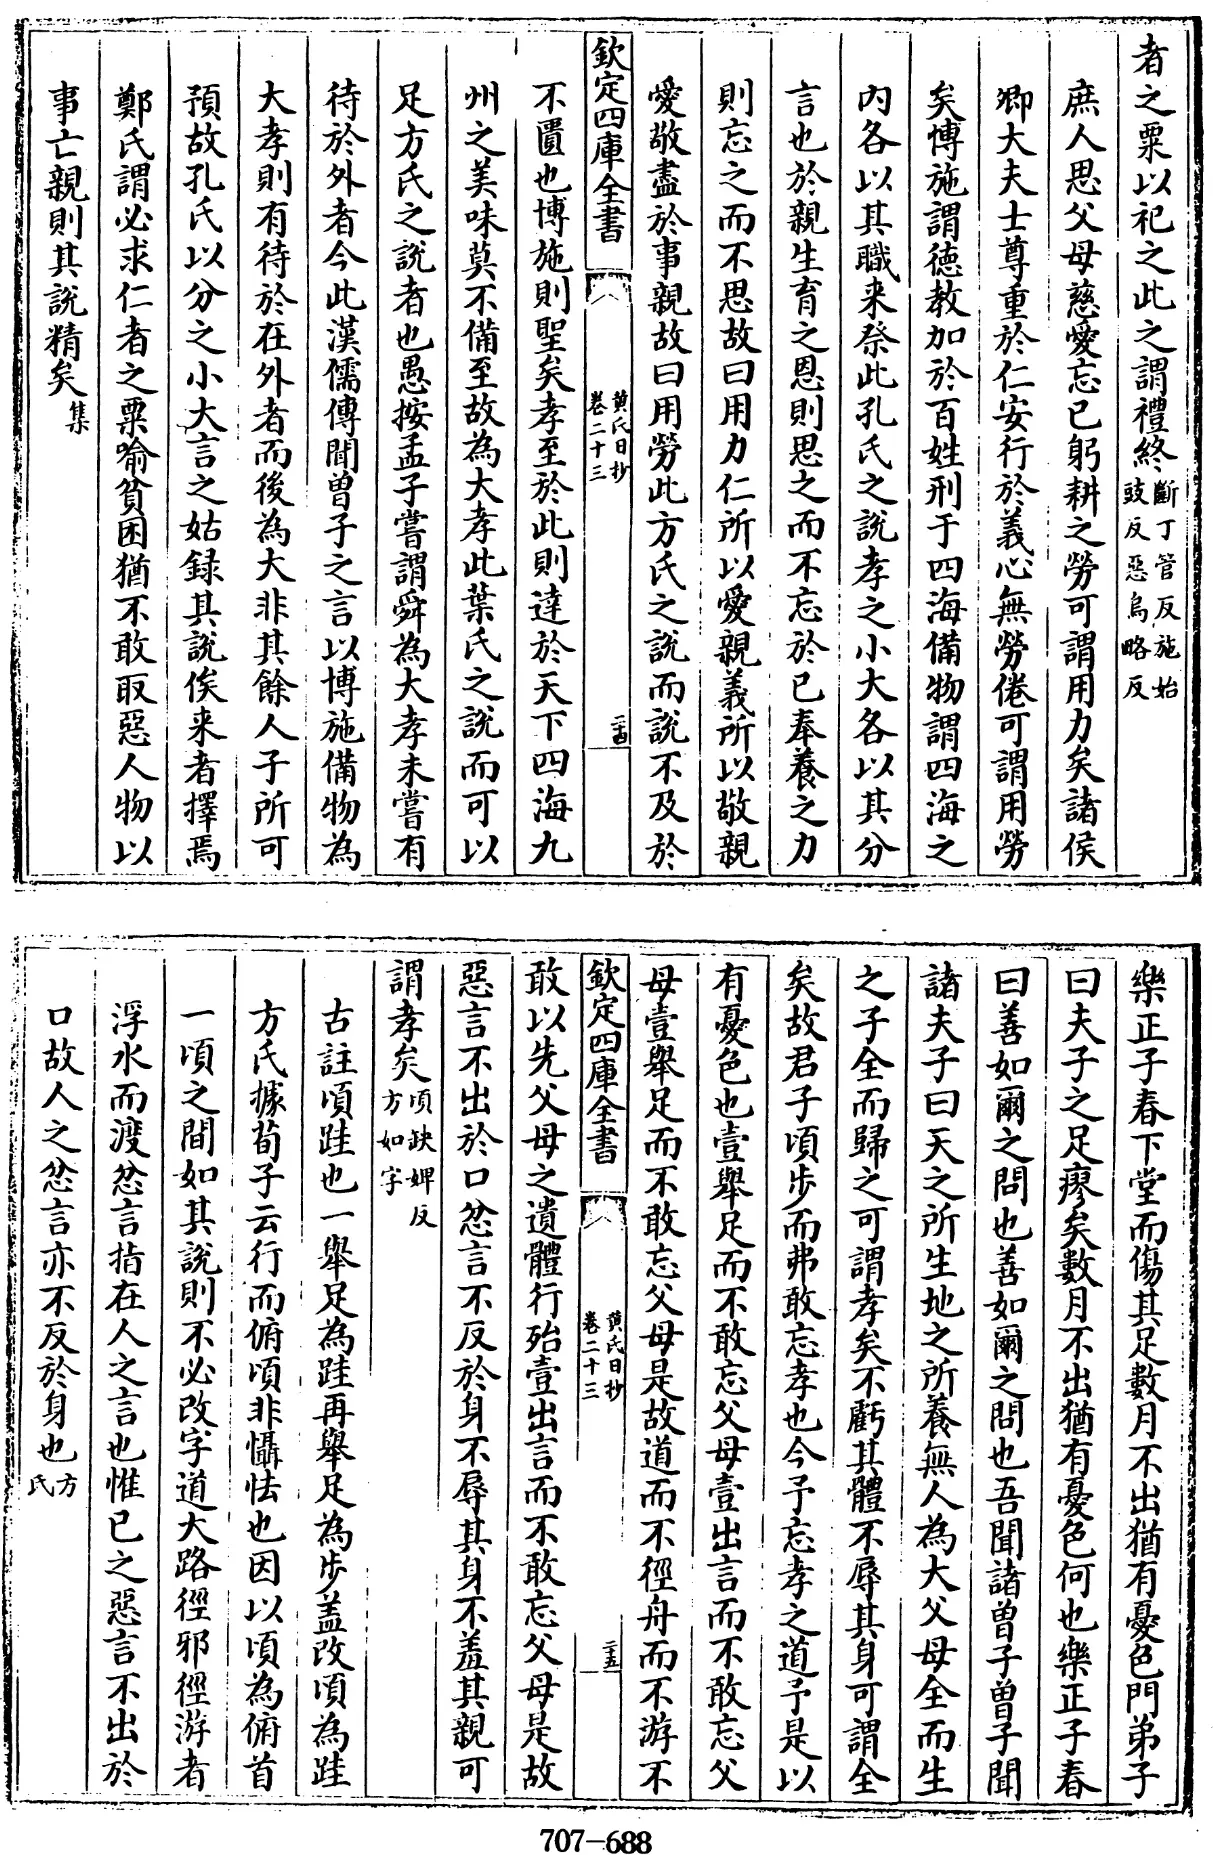 者之粟以祀之此之謂禮終斷丁管反施始豉反惡烏略反
庶人思父母慈愛忘己躬耕之勞可謂用力矣諸侯
卿大夫士尊重於仁安行於義心無勞倦可謂用勞
矣博施謂德教加於百姓刑于四海備物謂四海之
內各以其職来祭此孔氏之說孝之小大各以其分
言也於親生育之恩則思之而不忘於己奉養之力
則忘之而不思故曰用力仁所以愛親義所以敬親
愛敬盡於事親故曰用勞此方氏之說而說不及於
欽定四庫全書
黄氏日抄
卷二十三
二十四
不匱也博施則聖矣孝至於此則達於天下四海九
州之美味莫不備至故為大孝此葉氏之說而可以
足方氏之說者也愚按孟子嘗謂舜為大孝未嘗有
待於外者今此漢儒傳聞曾子之言以博施備物為
大孝則有待於在外者而後為大非其餘人子所可
預故孔氏以分之小大言之姑録其說俟来者擇焉
鄭氏謂必求仁者之粟喻貧困猶不敢取惡人物以
事亡親則其說精矣集
樂正子春下堂而傷其足數月不出猶有憂色門弟子
曰夫子之足瘳矣數月不出猶有憂色何也樂正子春
曰善如爾之問也善如爾之問也吾聞諸曾子曾子聞
諸夫子曰天之所生地之所養無人為大父母全而生
之子全而歸之可謂孝矣不虧其體不辱其身可謂全
矣故君子頃步而弗敢忘孝也今予忘孝之道予是以
有憂色也壹舉足而不敢忘父母壹出言而不敢忘父
母壹舉足而不敢忘父母是故道而不徑舟而不游不
欽定四庫全書
黄氏日抄
卷二十三
二十五
敢以先父母之遺體行殆壹出言而不敢忘父母是故
惡言不出於口忿言不反於身不辱其身不羞其親可
謂孝矣頃缺婢反方如字
古註頃跬也一舉足為跬再舉足為步盖改頃為跬
方氏據荀子云行而俯頃非懾怯也因以頃為俯首
一頃之間如其說則不必改字道大路徑邪徑游者
浮水而渡忿言指在人之言也惟己之惡言不出於
口故人之忿言亦不反於身也方氏
707-688